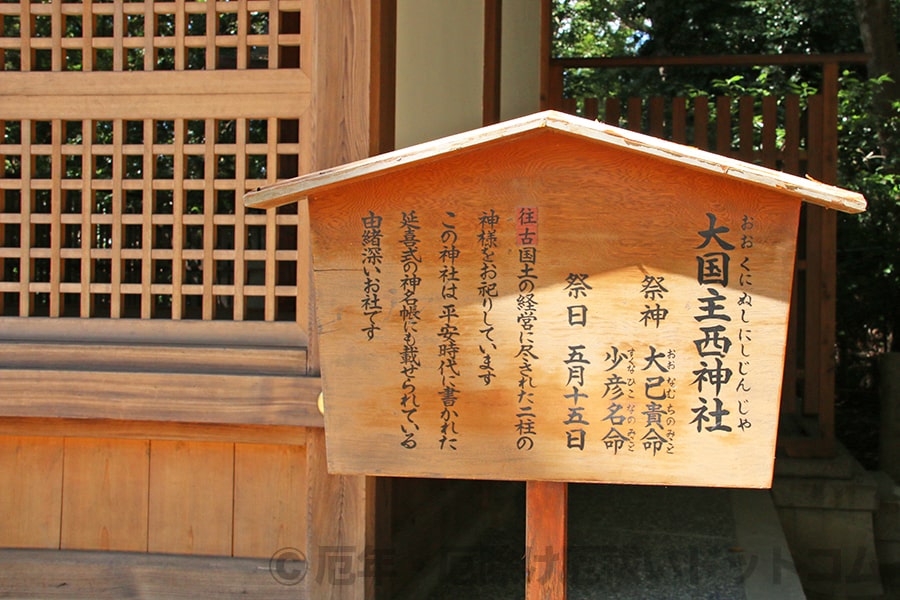 おおくにぬしにしじんじゃ
大国主西神社
祭神 大己貴命
おおなむちのみこと
少彦名命
すくなひこなのみこと
祭日 五月十五日
往古国土の経営に尽された二柱の
神様をお祀りしています
この神社は平安時代に書かれた
延喜式の神名帳にも載せられている
由緒深いお社です
©厄年・厄除け厄祓いドットコム